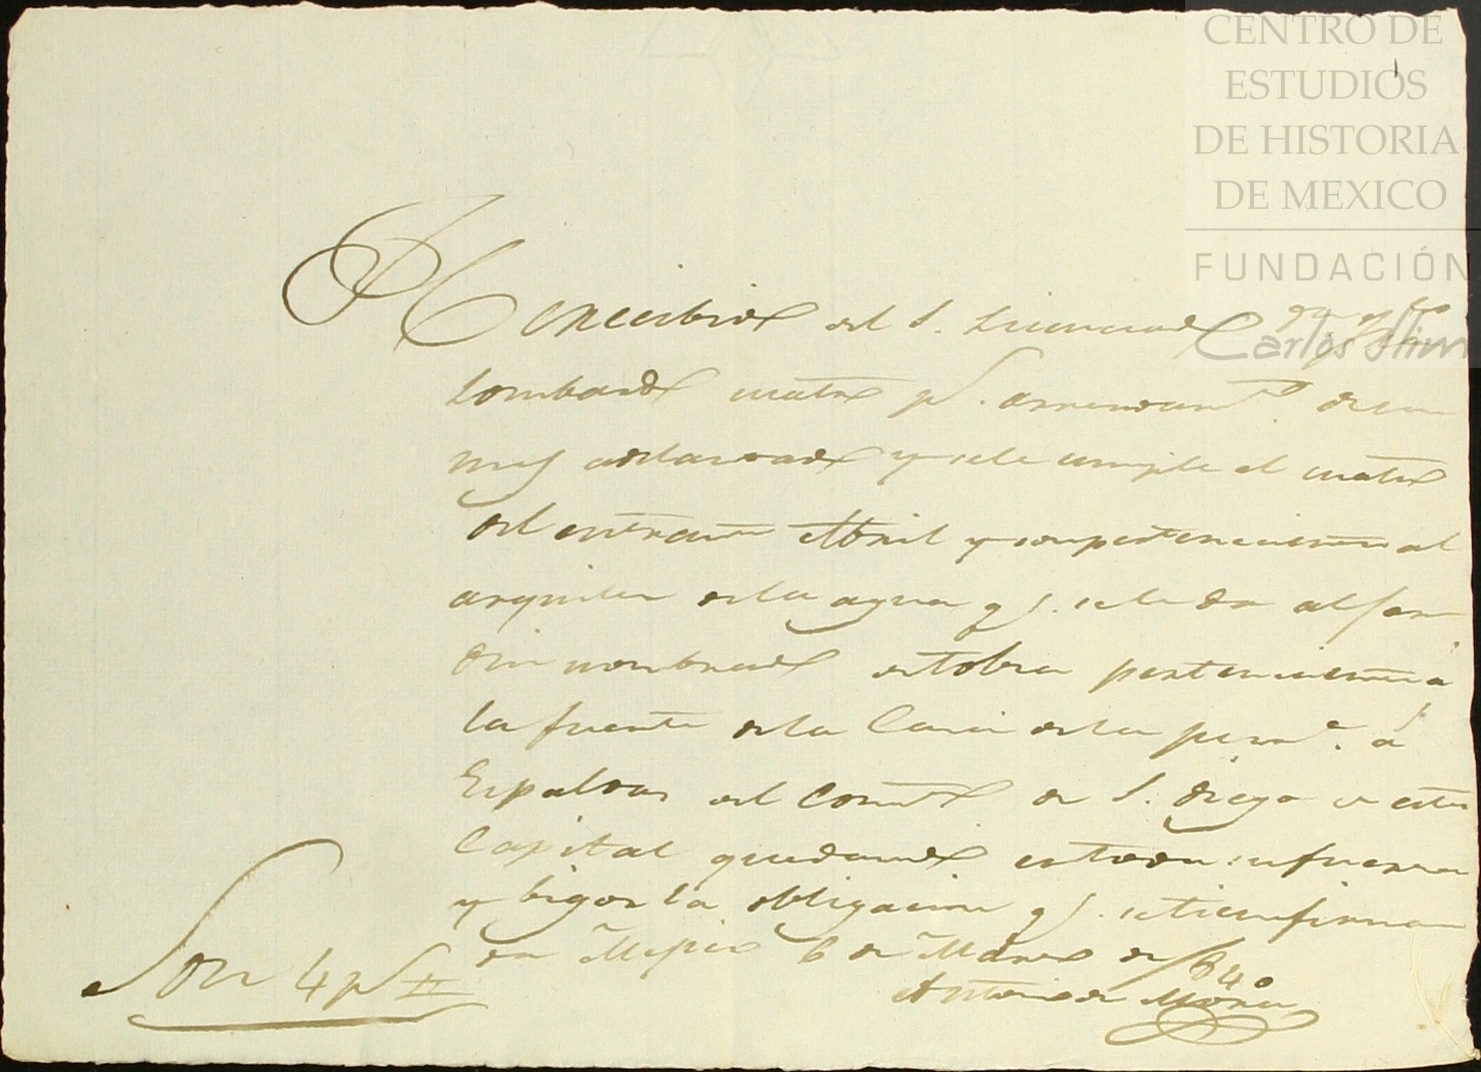 CENTRO DE
ESTUDIOS
DE HISTORIA
DE MEXICO
FUNDACIÓN
Carlos Slim
Rexcibido del S. Licenciado
Lombardo cuatro ps. arrendamto. de un
mes adelantado y se le cumple el cuatro
del entrante Abril y son pertenecientes al
arquiler de la agua qe. se le da al jar
din nombrado de tobra perteneciente á
la fuente de la Casa de la á
Espaldas del Combto de S. Diego de esta
Capital quedando en toda su fuerza
y bigor la obligacion qe. se tiene firma
da Mexico 6 de Marzo de 1840
Son 4 ps
Antonio de Mora